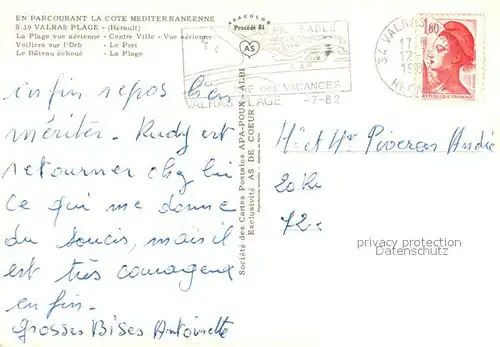 EN PARCOURANT LA COTE MEDITERRANEENNE
S.39 VALRAS PLAGE - (Hérault)
La Plage vue aérienne - Centre Ville - Vue aérienne
Voiliers sur l'Orb - Le Port
Le Bâteau échoué - La Plage
APACOLOR
Procédé 81
AS
SOLEIL SABLE
DES VACANCES
VALRAS PLAGE -7-82
34 VALRAS
17
12-
1,60
REPUBLIQUE FRANÇAISE
Société des Cartes Postales APA-POUX - ALBI
Exclusivité AS DE COEUR
infin repos bien
mériter. Rudy est
retourner chez lui
Ce qui me donne
du soucis, mais il
est très courageux
en fin.
Grosses Bises Antoinette
Me et Mr André
20 Ru
72
privacy protection
www.ansichtskarten-center.de